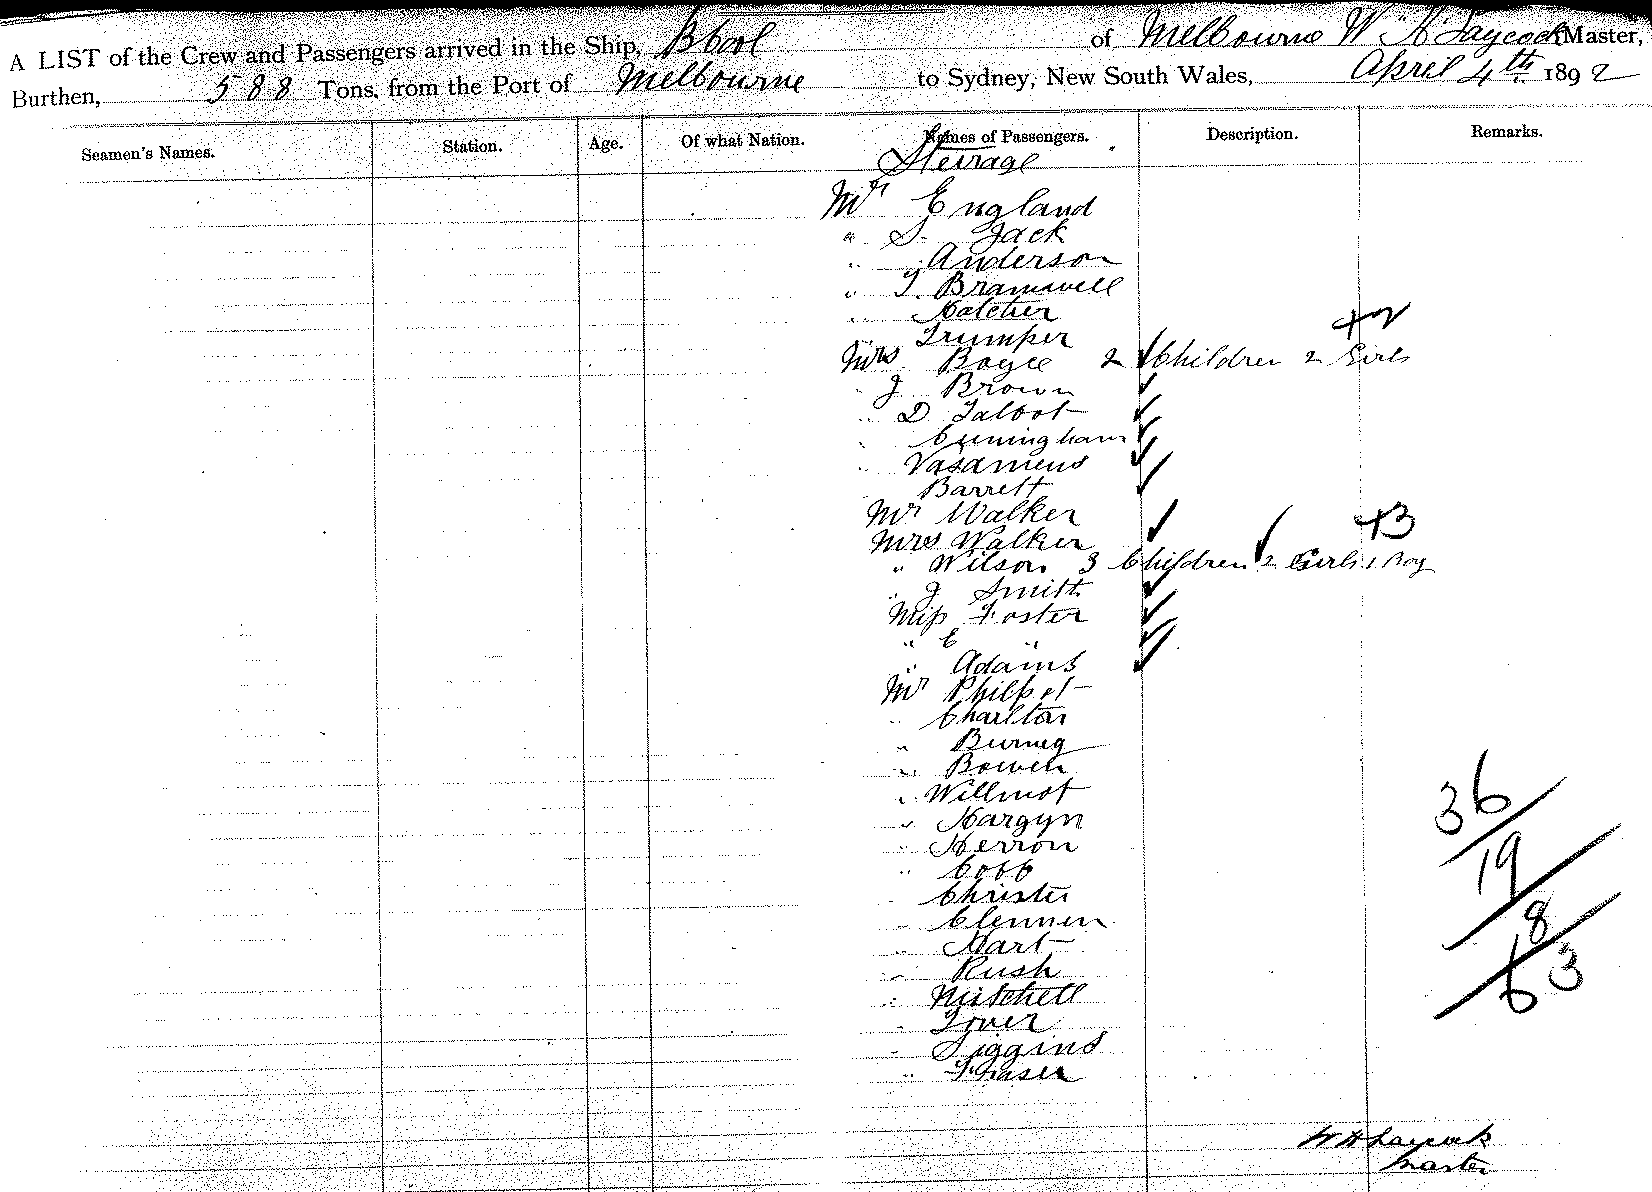 A LIST of the Crew and Passengers arrived in the Ship, Bbool of Melbourne W H Laycock Master,
Burthen, 588 Tons, from the Port of Melbourne to Sydney, New South Wales, April 4th 1892
Seamen's Names. Station. Age. Of what Nation. Names of Passengers. Description. Remarks.
Steerage
Mr England
" S. Jack
" Anderson
" T. Bramwell
" Hatcher
Trumper
+2
Mrs Boyce 2 Children 2 Girls
" J Brown
" D Talbot
" Cuningham
" Vasameus
Barrett
Mr Walker +3
Mrs Walker
" Wilson 3 Children 2 Girls 1 Boy
" J Smith
Miss Foster
" E "
" Adams
Mr Philpot
" Charlton
" Burneg
" Bowen
" Willmot
" Hargyn
" Herron
" Cobb
" Christie
" Clennen
" Hart
" Rush
" Mitchell
" Tover
" Siggins
" Fraser
36
19
8
63
W H Laycock
Master